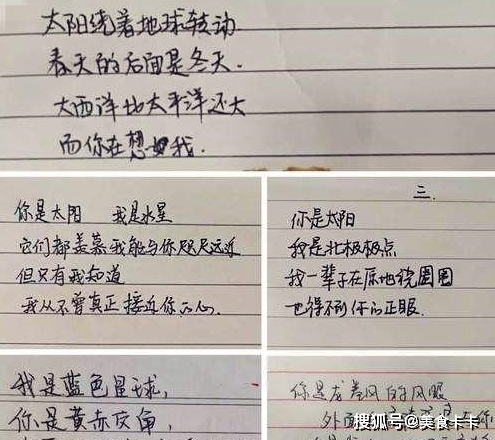 太阳绕着地球转动
春天的后面是冬天.
大西洋比太平洋还大
而你在想我.
你是太阳 我是水星
它们都羡慕我能与你咫尺远近
但只有我知道
我从不曾真正接近你的心.
三.
你是太阳
我是北极极点
我一辈子在原地绕圈圈
也得不到你的正眼.
我是蓝色星球,
你是黄赤交角,
你是龙卷风的风眼
外面
搜狐号@美食卡卡